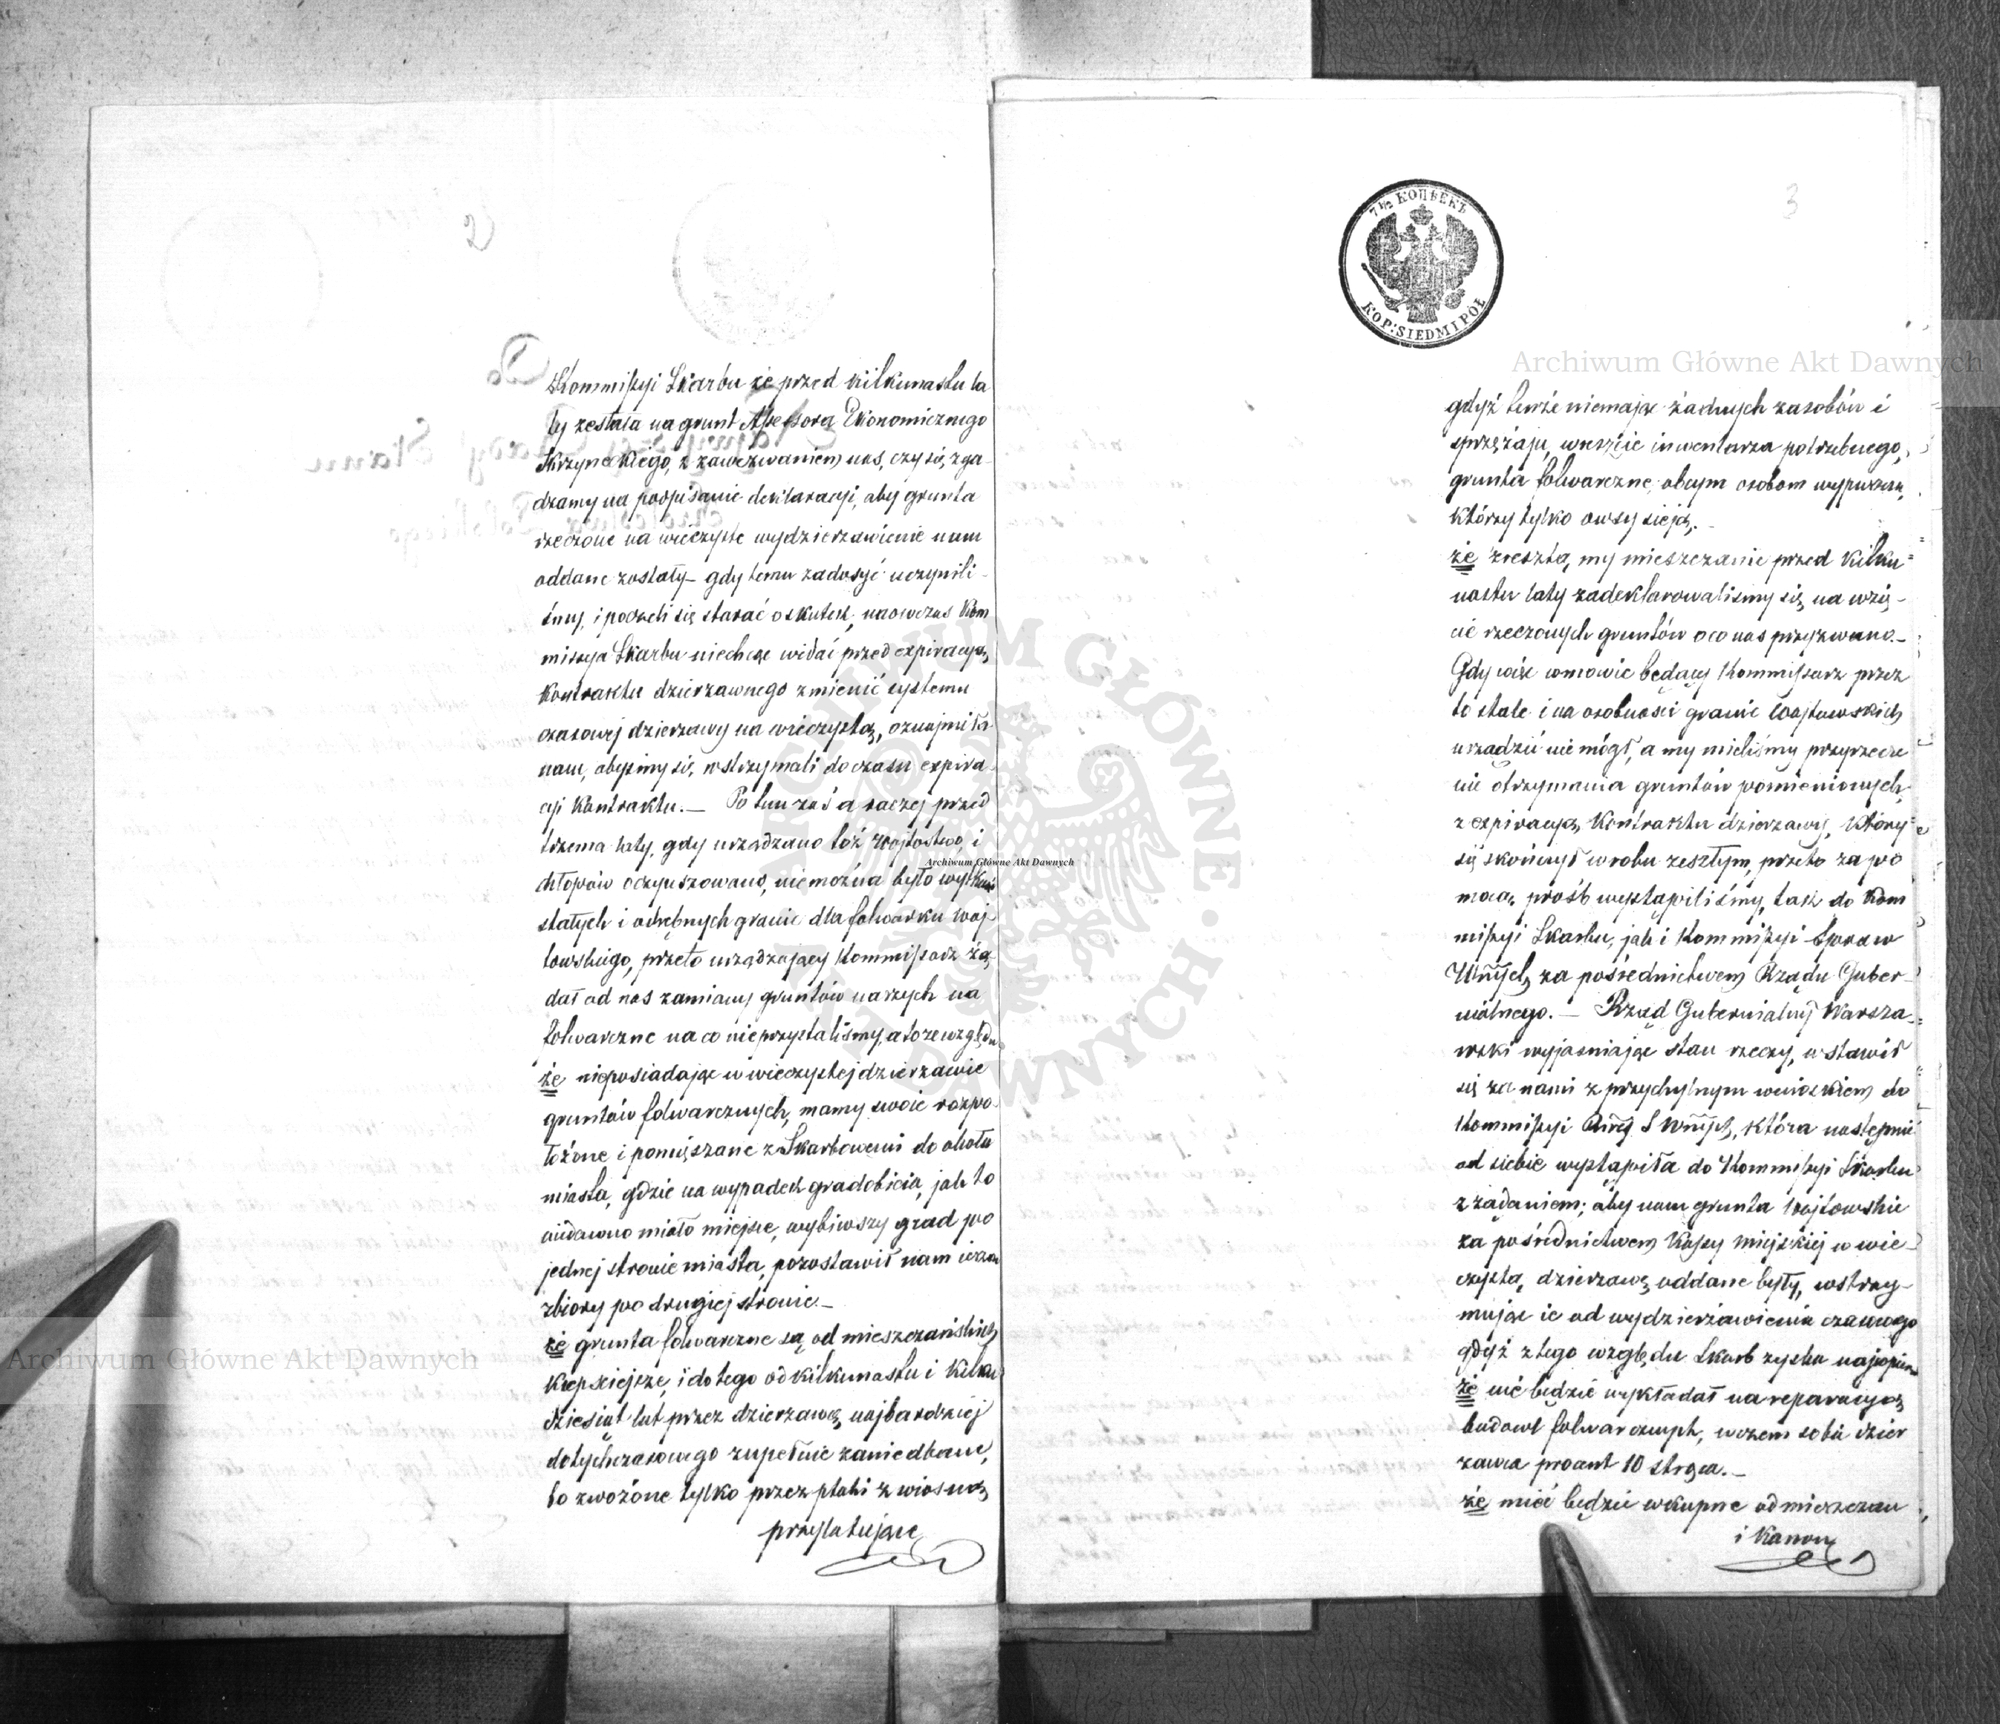 2
Kommissyi Skarbu że przed kilkunastu la
ty zesłała na grunt Assessora Ekonomicznego
Skrzyneckiego, z zawezwaniem nas, czy się zga-
dzamy na podpisanie deklaracyi, aby grunta
rzeczone na wieczyste wydzierzawienie nam
oddane zostały – gdy temu zadosyć uczynili-
śmy, i poczęli się starać o skutek, naówczas Kom
missya Skarbu niechcąc widać przed expiracyą
Kontraktu dzierzawnego zmienić systemu
czasowej dzierzawy na wieczystą, oznajmiła
nam, abyśmy się wstrzymali do czasu expira-
cyi Kontraktu. — Po tem zaś a raczej przed
trzema laty, gdy urządzano toż Wójtostwo, i
chłopów oczynszowano, niemożna było
stałych i odrębnych granic dla folwarku wój-
towskiego, przeto urządzający Kommissarz żą
dał od nas zamiany gruntów naszych na
folwarczne na co nieprzystaliśmy, a to ze względu
że nieposiadając w wieczystej dzierzawie
gruntów folwarcznych, mamy swoie rozpo-
łożone i pomięszane z Skarbowemi do okoła
miasta, gdzie na wypadek gradobicia, jak to
niedawno miało miejsce, wybiwszy grad po
jednej stronie miasta, pozostawił nam
zbiory po drugiej stronie. –
że grunta folwarczne są od mieszczańskich
krepsiejsze, i do tego od kilkunastu i kilku
dziesiąt lat przez dzierzawcę najbardziej
dotychczasowego zupełnie zaniedbane,
bo zwożone tylko przez ptaki z wiosną
przylatujące
3
7 1/2 КОПѢЕКЪ
KOP: SIEDM I PÓŁ
gdyż tenże niemając żadnych zasobów i
sprzężaju, wreszcie inwentarza potrzebnego,
grunta folwarczne, obcym osobom wypuszcza,
którzy tylko owsy sieją. –
że zresztą, my mieszczanie przed kilku-
nastu laty zadeklarowaliśmy się na wzię-
cie rzeczonych gruntów o co nas przyzwano. –
Gdy więc w mowie będący Kommissarz przez
to stałe i na osobności granic Wójtowskich
urządzić nie mógł, a my mieliśmy przyrzecze
nie otrzymania gruntów pomienionych
z expiracyą Kontraktu dzierzawy, który
się skończył w roku zeszłym, przeto za po
mocą prośb wystąpiliśmy, tak do Kom
missyi Skarbu, jak i Kommissyi Spraw
Wnych, za pośrednictwem Rządu Guber-
nialnego. — Rząd Gubernialny Warsza-
wski wyjaśniając stan rzeczy, wstawił
się za nami z przychylnym wnioskiem do
Kommissyi S Wnych, która następnie
od siebie wystąpiła do Kommissyi Skarbu
z żądaniem; aby nam grunta Wójtowskie
za pośrednictwem Kassy Miejskiej w wie-
czystą dzierzawę oddane były, wstrzy-
mując ie od wydzierżawienia czasowego
gdyż z tego względu Skarb zyska
że nie będzie wykładał na reparacyą
budowl folwarcznych, w czem sobie dzier
zawca procent 10 strąca. –
że mieć będzie wkupne od mieszczan
i Kanon
Archiwum Główne Akt Dawnych
Archiwum Główne Akt Dawnych
Archiwum Główne Akt Dawnych
ARCHIWUM GŁÓWNE AKT DAWNYCH